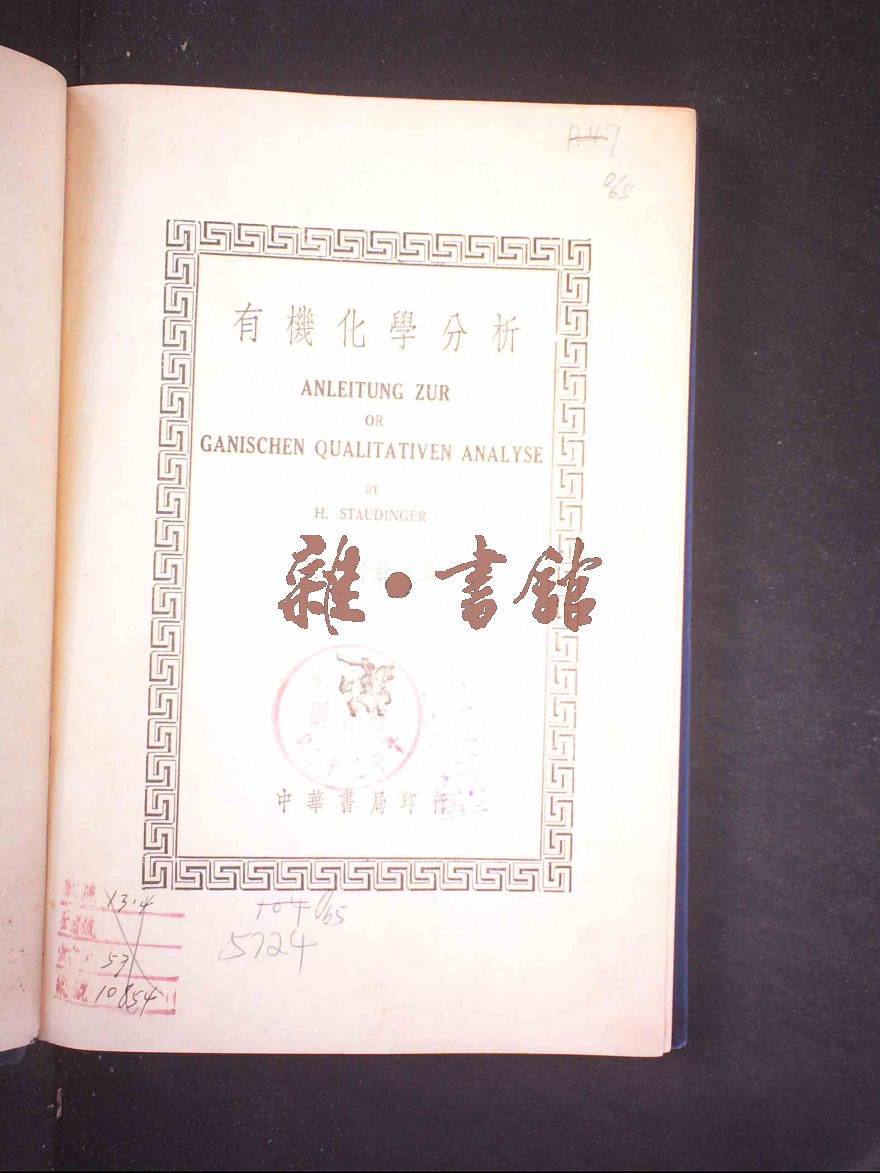 P.47
065
有機化學分析
ANLEITUNG ZUR
OR
GANISCHEN QUALITATIVEN ANALYSE
BY
H. STAUDINGER
雜·書館
中華書局印行
104 065
5724
13·4
53
10854